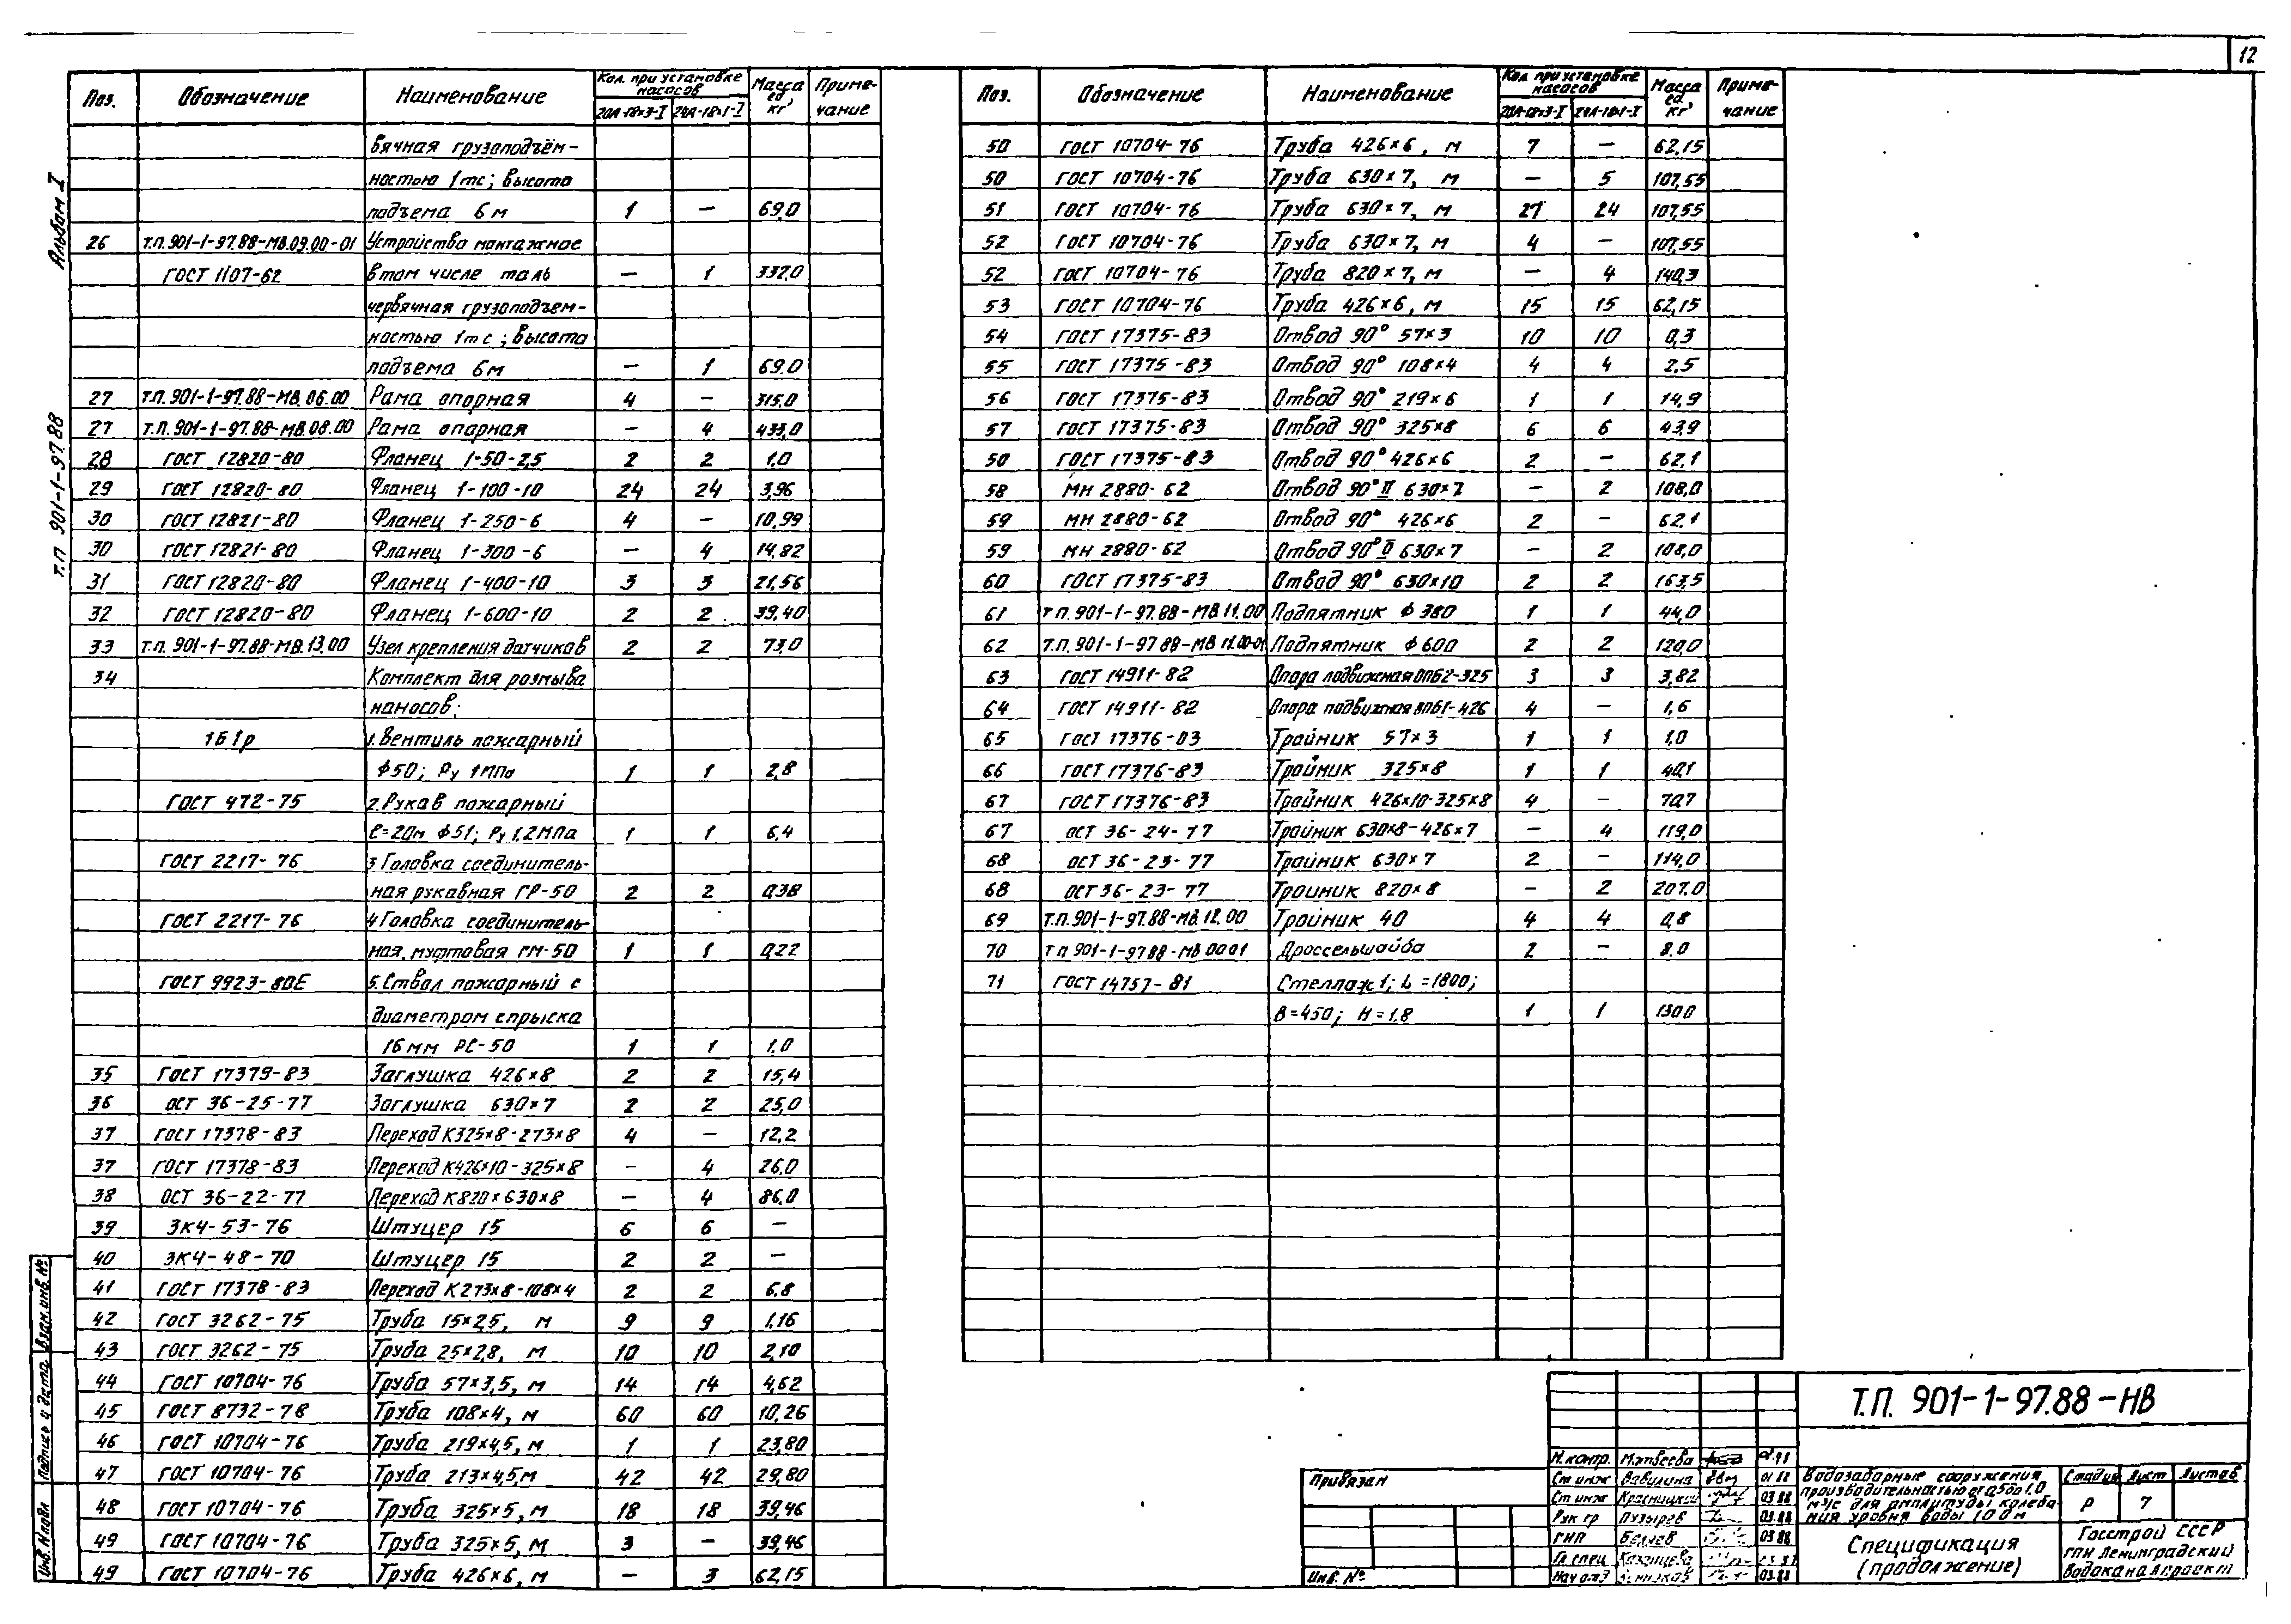 12
Альбом I
т.п 901-1-97.88
Поз. Обозначение Наименование Кол. при установке насосов 20А-18×3-I 24А-18×1-I Масса ед., кг Примечание
вячная грузоподъём-
ностью 1тс; высота
подъема 6 м 1 — 69.0
26 т.п.901-1-97.88-МВ.09.00-01 Устройство монтажное
ГОСТ 1107-62 в том числе таль — 1 332.0
червячная грузоподъем-
ностью 1тс; высота
подъема 6м — 1 69.0
27 т.п.901-1-97.88-МВ.06.00 Рама опорная 4 — 315.0
27 т.п.901-1-97.88-МВ.08.00 Рама опорная — 4 433,0
28 ГОСТ 12820-80 Фланец 1-50-2,5 2 2 1,0
29 ГОСТ 12820-80 Фланец 1-100-10 24 24 3,96
30 ГОСТ 12821-80 Фланец 1-250-6 4 — 10,99
30 ГОСТ 12821-80 Фланец 1-300-6 — 4 14,82
31 ГОСТ 12820-80 Фланец 1-400-10 3 3 21,56
32 ГОСТ 12820-80 Фланец 1-600-10 2 2 39,40
33 т.п.901-1-97.88-МВ.13.00 Узел крепления датчиков 2 2 73,0
34 Комплект для размыва
наносов:
1Б1р 1. Вентиль пожарный
ф50; Ру 1МПа 1 1 2,8
ГОСТ 472-75 2. Рукав пожарный
ℓ=20м ф51; Ру 1,2МПа 1 1 6,4
ГОСТ 2217-76 3 Головка соединитель-
ная рукавная ГР-50 2 2 0,38
ГОСТ 2217-76 4 Головка соединитель-
ная муфтовая ГМ-50 1 1 0,22
ГОСТ 9923-80Е 5. Ствол пожарный с
диаметром спрыска
16 мм РС-50 1 1 1.0
35 ГОСТ 17379-83 Заглушка 426×8 2 2 15,4
36 ОСТ 36-25-77 Заглушка 630×7 2 2 25,0
37 ГОСТ 17378-83 Переход К325×8-273×8 4 — 12,2
37 ГОСТ 17378-83 Переход К426×10-325×8 — 4 26.0
38 ОСТ 36-22-77 Переход К820×630×8 — 4 86.0
39 ЗК4-53-76 Штуцер 15 6 6 —
40 ЗК4-48-70 Штуцер 15 2 2 —
41 ГОСТ 17378-83 Переход К273×8-108×4 2 2 6,8
42 ГОСТ 3262-75 Труба 15×2,5, м 9 9 1,16
43 ГОСТ 3262-75 Труба 25×2,8, м 10 10 2,10
44 ГОСТ 10704-76 Труба 57×3,5, м 14 14 4,62
45 ГОСТ 8732-78 Труба 108×4, м 60 60 10,26
46 ГОСТ 10704-76 Труба 219×4,5, м 1 1 23,80
47 ГОСТ 10704-76 Труба 213×4,5, м 42 42 29,80
48 ГОСТ 10704-76 Труба 325×5, м 18 18 39,46
49 ГОСТ 10704-76 Труба 325×5, м 3 — 39,46
49 ГОСТ 10704-76 Труба 426×6, м — 3 62,15
Поз. Обозначение Наименование Кол. при установке насосов 20А-18×3-I 24А-18×1-I Масса ед., кг Примечание
50 ГОСТ 10704-76 Труба 426×6, м 7 — 62,15
50 ГОСТ 10704-76 Труба 630×7, м — 5 107,55
51 ГОСТ 10704-76 Труба 630×7, м 27 24 107,55
52 ГОСТ 10704-76 Труба 630×7, м 4 — 107,55
52 ГОСТ 10704-76 Труба 820×7, м — 4 140,3
53 ГОСТ 10704-76 Труба 426×6, м 15 15 62,15
54 ГОСТ 17375-83 Отвод 90° 57×3 10 10 0,3
55 ГОСТ 17375-83 Отвод 90° 108×4 4 4 2,5
56 ГОСТ 17375-83 Отвод 90° 219×6 1 1 14,9
57 ГОСТ 17375-83 Отвод 90° 325×8 6 6 43,9
50 ГОСТ 17375-83 Отвод 90° 426×6 2 — 62,1
58 МН 2880-62 Отвод 90° II 630×7 — 2 108,0
59 МН 2880-62 Отвод 90° 426×6 2 — 62,1
59 МН 2880-62 Отвод 90° II 630×7 — 2 108,0
60 ГОСТ 17375-83 Отвод 90° 630×10 2 2 163,5
61 т.п.901-1-97.88-МВ 11.00 Подпятник ф 380 1 1 44,0
62 т.п.901-1-97 88-МВ 11.00-01 Подпятник ф 600 2 2 120,0
63 ГОСТ 14911-82 Опора подвижная ОПБ2-325 3 3 3,82
64 ГОСТ 14911-82 Опора подвижная ОПБ1-426 4 — 1,6
65 ГОСТ 17376-83 Тройник 57×3 1 1 1,0
66 ГОСТ 17376-83 Тройник 325×8 1 1 40,1
67 ГОСТ 17376-83 Тройник 426×10-325×8 4 — 70,7
67 ОСТ 36-24-77 Тройник 630×8-426×7 — 4 119,0
68 ОСТ 36-23-77 Тройник 630×7 2 — 114,0
68 ОСТ 36-23-77 Тройник 820×8 — 2 207.0
69 т.п.901-1-97.88-МВ.12.00 Тройник 40 4 4 0,8
70 т п 901-1-97 88-МВ 00 01 Дроссельшайба 2 — 8.0
71 ГОСТ 14757-81 Стеллаж 1; L=1800;
В=450; Н=1.8 1 1 130.0
Инв. № подл Подпись и дата Взам. инв. №
Привязан
Инв. №
Т.П. 901-1-97.88-НВ
Н.контр. Матвеева
Ст инж Вавилина 01 88
Ст инж Красницкий 03 88
Рук гр Пузырев 03.88
ГИП Беляев 03 88
Гл спец Казанцева
Нач отд 03.88
Водозаборные сооружения
производительностью от 0,5 до 1,0
м³/с для амплитуды колеба-
ния уровня воды 10,0 м
Стадия Лист Листов
Р 7
Спецификация
(продолжение)
Госстрой СССР
ГПИ Ленинградский
Водоканалпроект